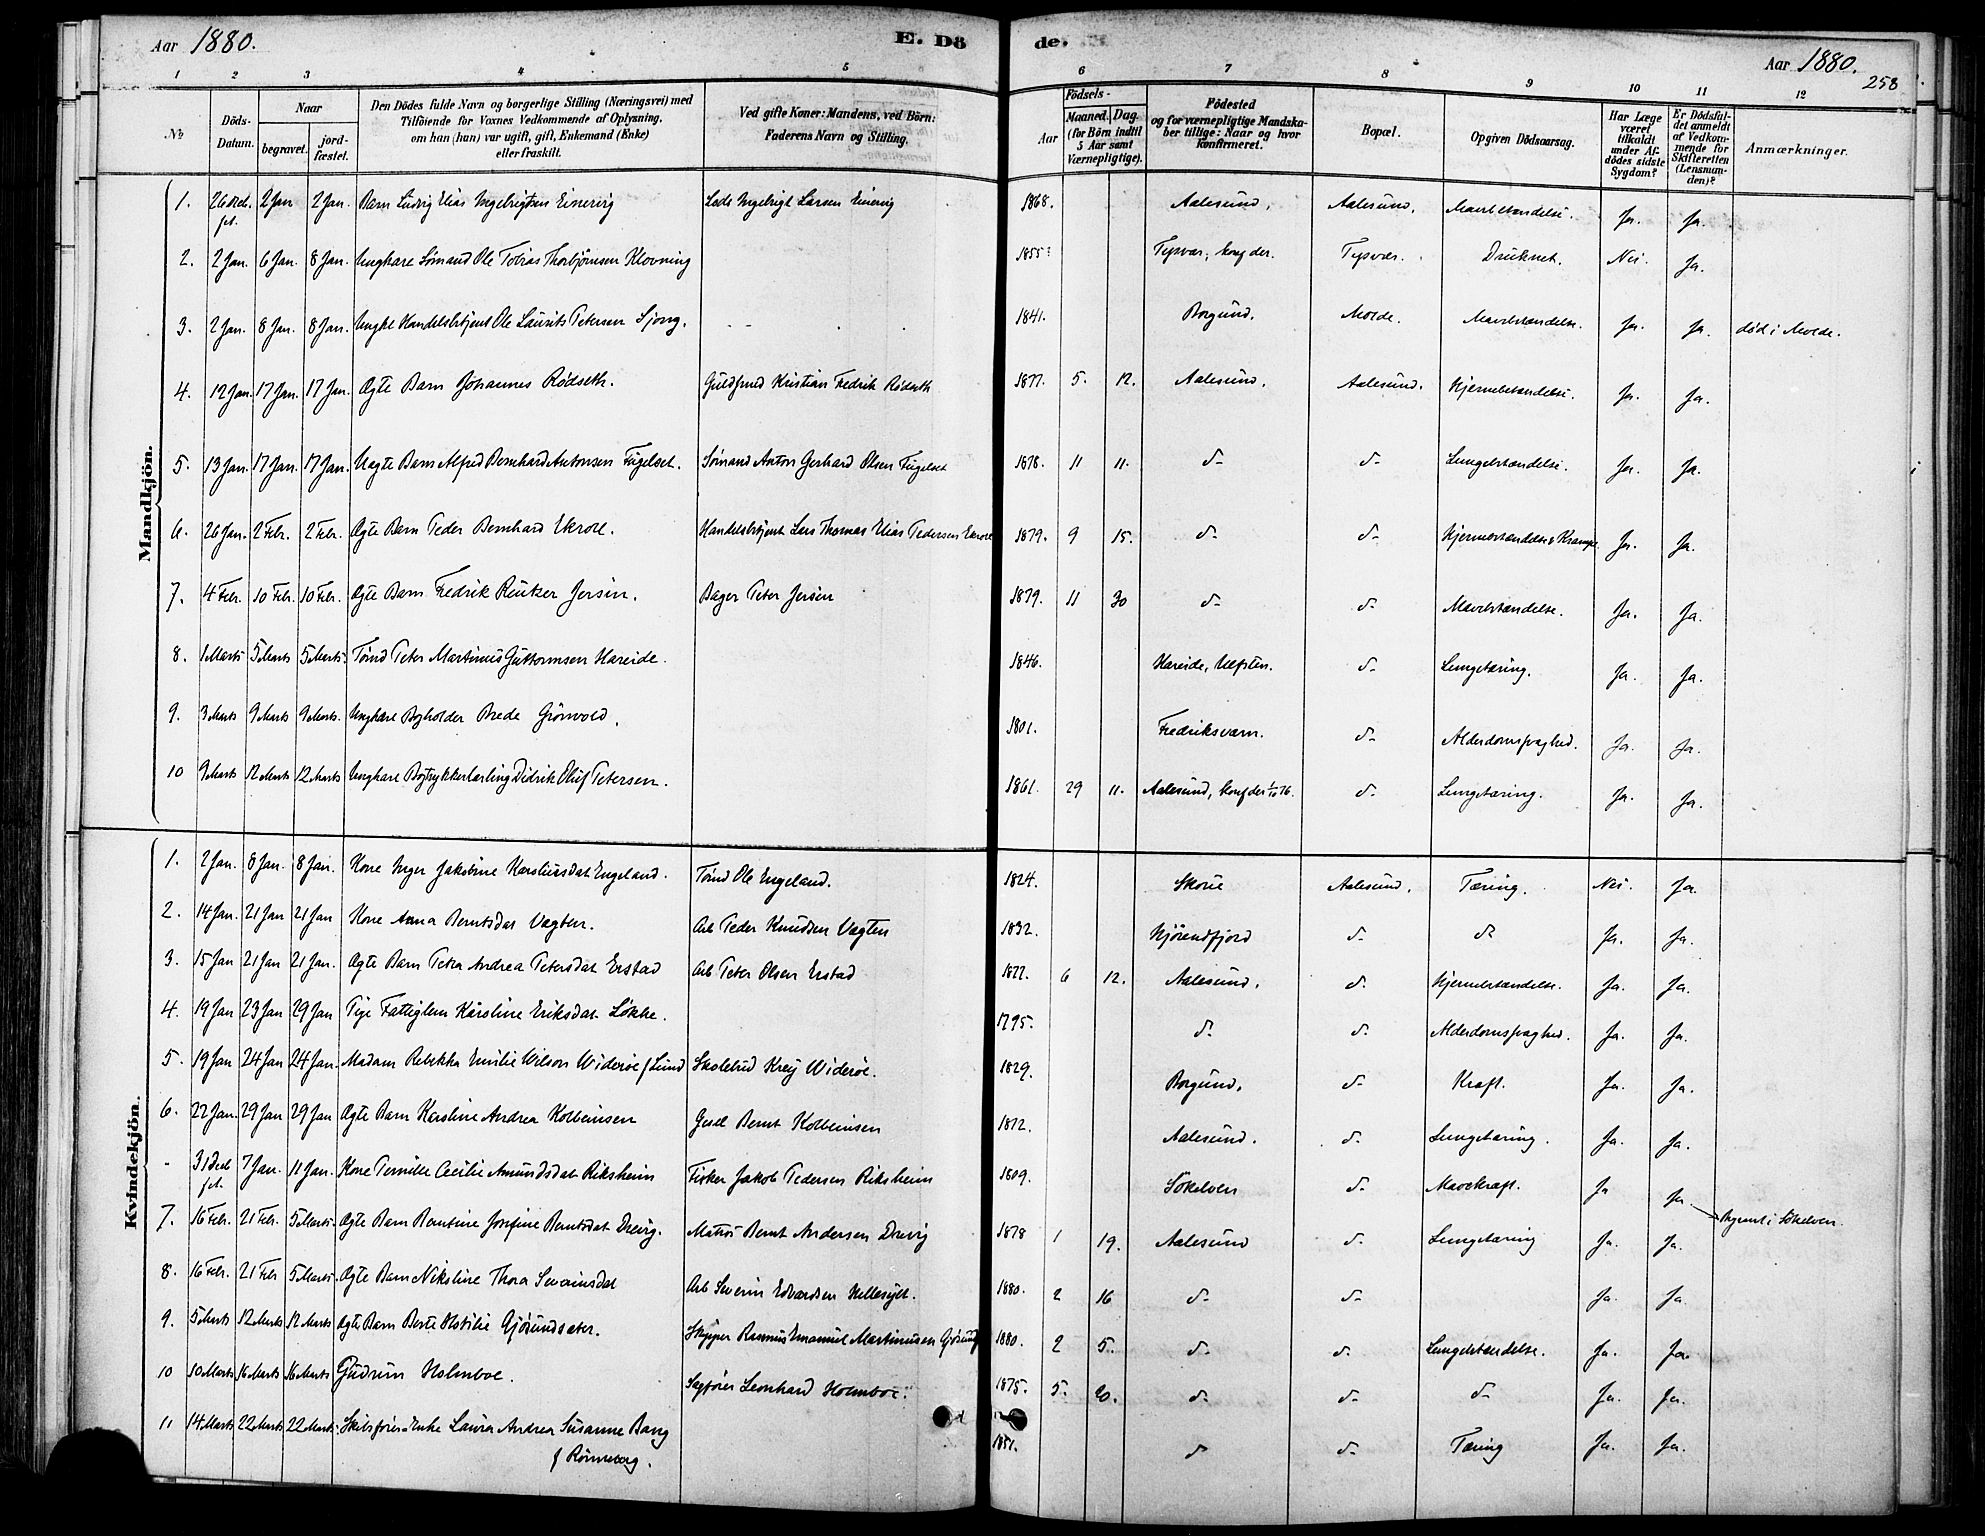 Aar 1880. E. Dö de. Aar 1880.
258
1 2 3 4 5 6 7 8 9 10 11 12
No Döds-Datum. Naar begravet. jordfæstet. Den Dödes fulde Navn og borgerlige Stilling (Næringsvei) med Tilföiende for Voxnes Vedkommende af Oplysning, om han (hun) var ugift, gift, Enkemand (Enke) eller fraskilt. Ved gifte Koner: Mandens, ved Börn: Faderens Navn og Stilling. Födsels- Aar Maaned. Dag. (for Börn indtil 5 Aar samt Værnepligtige). Födested og for værnepligtige Mandskaber tillige: Naar og hvor konfirmeret. Bopæl. Opgiven Dödsaarsag. Har Læge været tilkaldt under Afdödes sidste Sygdom? Er Dödsfaldet anmeldt af Vedkommende for Skifteretten (Lensmanden)? Anmærkninger.
Mandkjön.
1. 26 Dec. f.A. 2 Jan 2 Jan. Barn Ludvig Elias Ingebrigtsen Einevig Lods Ingebrigt Larsen Einevig 1868. Aalesund. Aalesund. Mavebetændelse. Ja. Ja.
2. 2 Jan. 6 Jan. 8 Jan. Ungkare Sømand Ole Tobias Thorbjørnsen Klovning 1855? Tysvær, konf der. Tysvær. Druknet. Nei. Ja.
3. 2 Jan. 8 Jan. 8 Jan. Ungkl Handelsbetjent Ole Laurits Petersen Sjong. 1841. Borgund. Molde. Mavebetændelse. Ja. Ja. død i Molde.
4. 12 Jan. 17 Jan. 17 Jan. Ægte Barn Johannes Rødseth. Guldsmed Kristian Fredrik Rødseth 1877. 5. 12. Aalesund. Aalesund. Hjernebetændelse. Ja. Ja.
5. 13 Jan. 17 Jan. 17 Jan. Uægte Barn Alfred Bernhard Antonsen Fugelset. Sømand Anton Gerhard Olsen Fugelset 1878. 11 11. d- d- Lungebetændelse. Ja. Ja.
6. 26 Jan. 2 Febr. 2 Febr. Ægte Barn Peder Bernhard Ekroll. Handelsbetjent Lars Thomas Elias Pedersen Ekroll 1879. 9 15. d- d- Hjernebetændelse & Krampe. Ja. Ja.
7. 4 Febr. 10 Febr. 10 Febr. Ægte Barn Fredrik Reutzer Jersin. Bager Peter Jersin 1879. 11 30 d- d- Mavebetændelse. Ja. Ja.
8. 1 Marts 5 Marts 5 Marts Tømd Peter Martinus Guttormsen Hareide. 1846. Hareide, Ulfsten. d- Lungetæring. Ja. Ja.
9. 3 Marts 9 Marts 9 Marts. Ungkare Bogholder Brede Grönvold. 1801. Fredriksværn. d- Alderdomssvaghed. Ja. Ja.
10 9 Marts 12 Marts 12 Marts Ungkare Bogtrykkerlærling Didrik Oluf Petersen. 1861. 29 11. Aalesund, konf der 1/10 76. d- Lungetæring. Ja. Ja.
Kvindekjön.
1. 2 Jan. 8 Jan. 8 Jan. Kone Inger Jakobine Karolinsdat Engeland. Tømd Ole Engeland. 1824. Skorie Aalesund. Tæring. Nei. Ja.
2. 14 Jan. 21 Jan 21 Jan Kone Anna Berntsdat Vegten. Arb Peder Knudsen Vegten 1832. Hjörendfjord d- d- Ja. Ja.
3. 15 Jan 21 Jan 21 Jan. Ægte Barn Petra Andrea Petersdat Erstad Arb Peter Olsen Erstad 1877. 6 12. Aalesund. d- Hjernebetændelse. Ja. Ja.
4. 19 Jan 23 Jan 29 Jan Pige Fattiglem Karoline Eriksdat Løkke. 1795. d- d- Alderdomssvaghed. Ja. Ja.
5. 19 Jan 24 Jan 24 Jan. Madam Rebekka Emilie Wilson Widerøe f Lund Skolebud Krey Widerøe. 1829. Borgund. d- Kræft. Ja. Ja.
6. 22 Jan. 29 Jan 29 Jan Ægte Barn Karoline Andrea Kolbeinsen Gesel Bernt Kolbeinsen 1872. Aalesund. d- Lungetæring. Ja. Ja.
- 31 Dec f.A. 7 Jan. 11 Jan. Kone Pernille Cecilie Amundsdat Riksheim Fisker Jakob Pedersen Riksheim 1809. Sökelven d- Mavekræft. Ja Ja Begravet i Sökelven.
7. 16 Febr. 21 Febr. 5 Marts. Ægte Barn Berntine Josefine Berntsdat Drevig. Matros Bernt Andersen Drevig 1878 1 19. Aalesund d- Lungetæring Ja. Ja.
8. 16 Febr. 21 Febr 5 Marts. Ægte Barn Nikoline Thora Severinsdat Arb Severin Edvardsen Hellesylt. 1880. 2 16 d- d- Ja. Ja.
9. 5 Marts 12 Marts 12 Marts Ægte Barn Berte Otilie Gjøsundsæter. Skipper Rasmus Emanuel Martinusen Gjøsund 1880. 2 5. d- d- Lungebetændelse. Ja. Ja.
10 10 Marts 16 Marts 16 Marts Gudrun Holmboe. Sagfører Leonhard Holmboe. 1875. 5. 20. d- d- d- Ja. Ja.
11 14 Marts 22 Marts 22 Marts. Skibsfører-Enke Laura Andrea Susanne Bang 1851. d- d- Tæring Ja. Ja.
f Rönneberg.